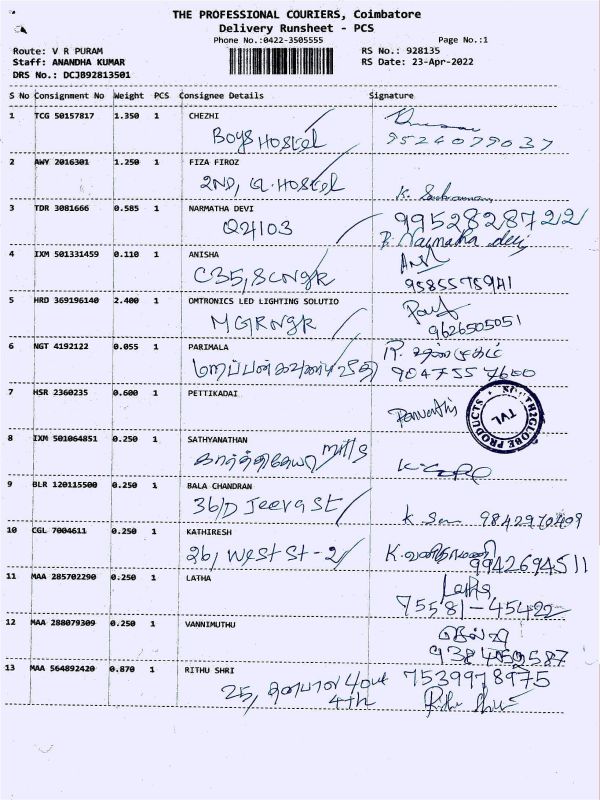 THE PROFESSIONAL COURIERS, Coimbatore
Delivery Runsheet - PCS
Phone No.:0422-3505555 Page No.:1
Route: V R PURAM RS No.: 928135
Staff: ANANDHA KUMAR RS Date: 23-Apr-2022
DRS No.: DCJB92813501
S No Consignment No Weight PCS Consignee Details Signature
1 TCG 50157817 1.350 1 CHEZHI
Boys Hostel 9524079037
2 AWY 2016301 1.250 1 FIZA FIROZ
2ND, G.Hostel
3 TDR 3081666 0.585 1 NARMATHA DEVI
Q4103 9952828722
4 IXM 501331459 0.110 1 ANISHA
C35, SCNGR 9585575941
5 HRD 369196140 2.400 1 OMTRONICS LED LIGHTING SOLUTIO
MGRNGR 9626505051
6 NGT 4192122 0.055 1 PARIMALA
9047557600
7 HSR 2360235 0.600 1 PETTIKADAI
Parvathi SOUTH2GLOBE PRODUCTS TVL
8 IXM 501064851 0.250 1 SATHYANATHAN
mills
9 BLR 120115500 0.250 1 BALA CHANDRAN
36/D Jeeva St
10 CGL 7004611 0.250 1 KATHIRESH
26, West St-2 9942694511
11 MAA 285702290 0.250 1 LATHA
Latha
75581-45422
12 MAA 288079309 0.250 1 VANNIMUTHU
13 MAA 564892420 0.870 1 RITHU SHRI 7539978975
25, 4th